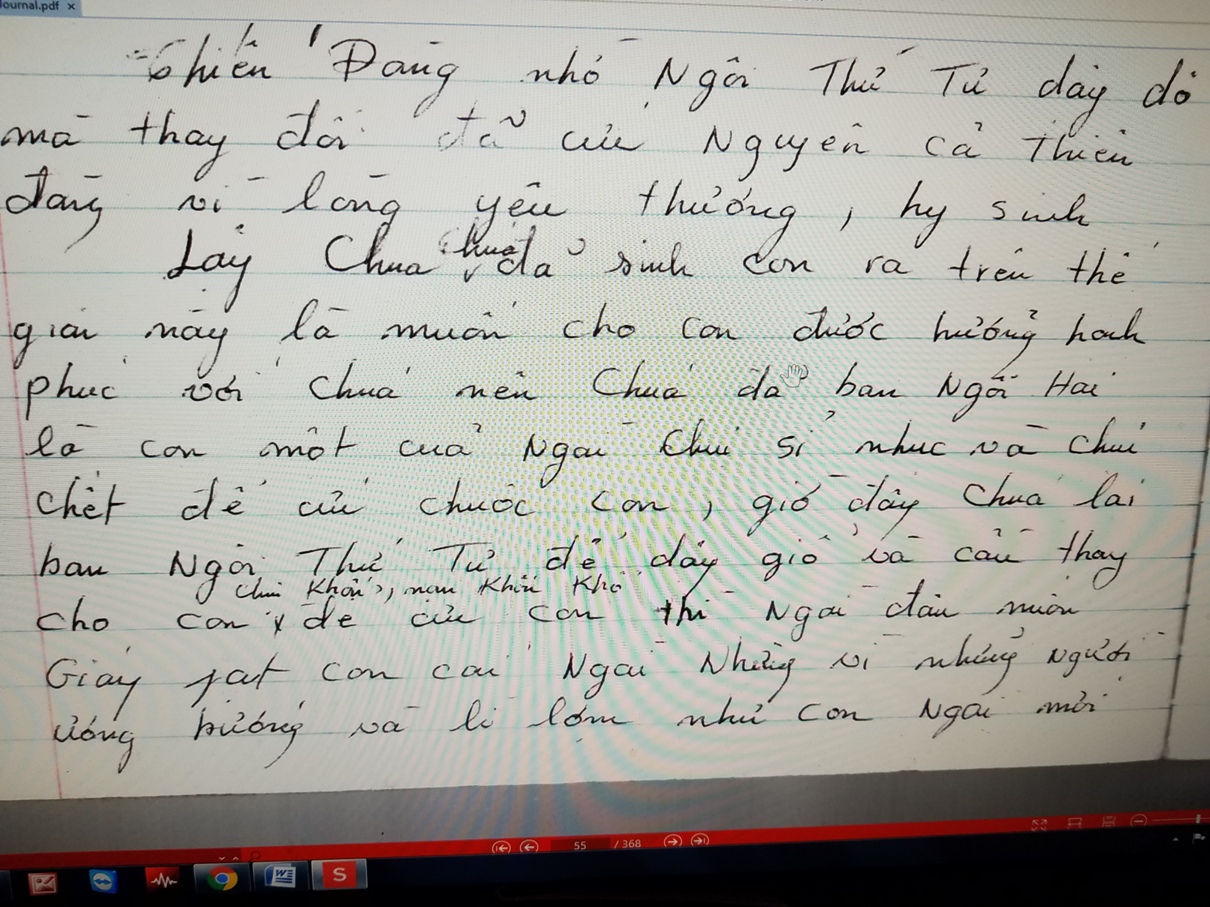 Journal.pdf ×
Thiên Đàng nhỏ Ngôi Thứ Tư dạy dỗ
mà thay đổi đã cứu Nguyên cả thiên
đàng vì lòng yêu thương, hy sinh
Lạy Chúa Chúa đã sinh con ra trên thế
gian này là muốn cho con được hưởng hạnh
phúc với Chúa nên Chúa đã ban Ngôi Hai
là con một của Ngài chịu sỉ nhục và chịu
chết để cứu chuộc con, giờ đây Chúa lại
ban Ngôi Thứ Tư để dạy giỗ và cầu thay
chịu khốn, nạn khốn khổ
cho con để cứu con thì Ngài đâu muốn
Giáy jạt con cái Ngài Nhưng vì những Người
ương bướng và lì lợm như con Ngài mới
55 / 368